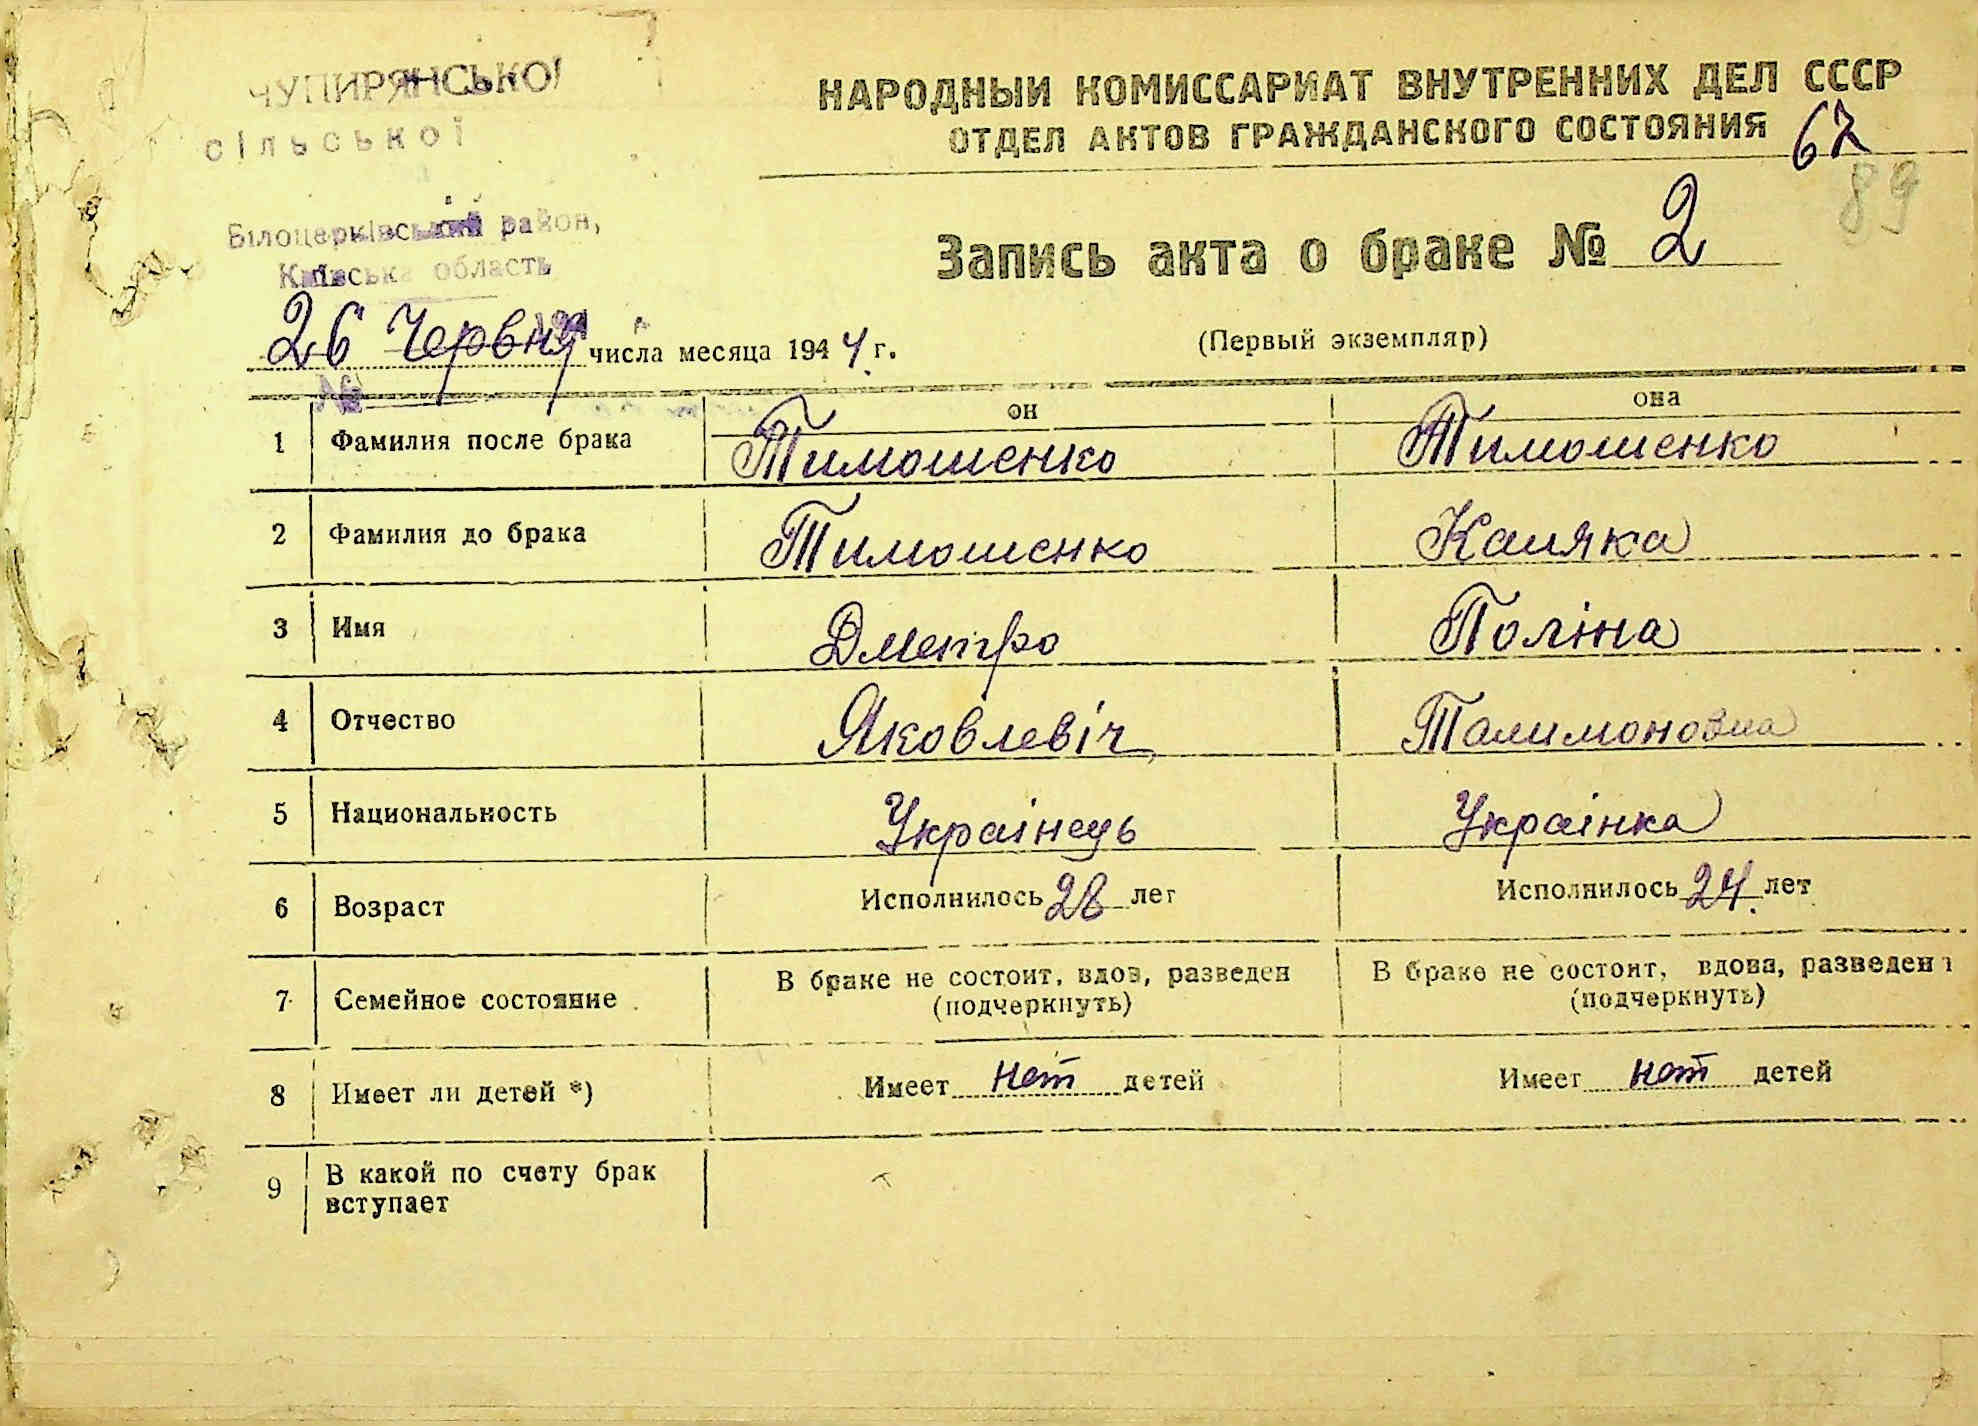 ЧУПИРЯНСЬКОЇ
сільської
Білоцерківський район,
Київська область
НАРОДНЫЙ КОМИССАРИАТ ВНУТРЕННИХ ДЕЛ СССР
ОТДЕЛ АКТОВ ГРАЖДАНСКОГО СОСТОЯНИЯ
67
89
Запись акта о браке № 2
26 Червня числа месяца 1944 г.
(Первый экземпляр)
№
он она
1 Фамилия после брака Тимошенко Тимошенко
2 Фамилия до брака Тимошенко
3 Имя Дметро Поліна
4 Отчество Яковлевіч Талимоновна
5 Национальность Украінець Украінка
6 Возраст Исполнилось 28 лет Исполнилось 24 лет
7 Семейное состояние В браке не состоит, вдов, разведен В браке не состоит, вдова, разведен
(подчеркнуть) (подчеркнуть)
8 Имеет ли детей *) Имеет нет детей Имеет нет детей
9 В какой по счету брак
вступает